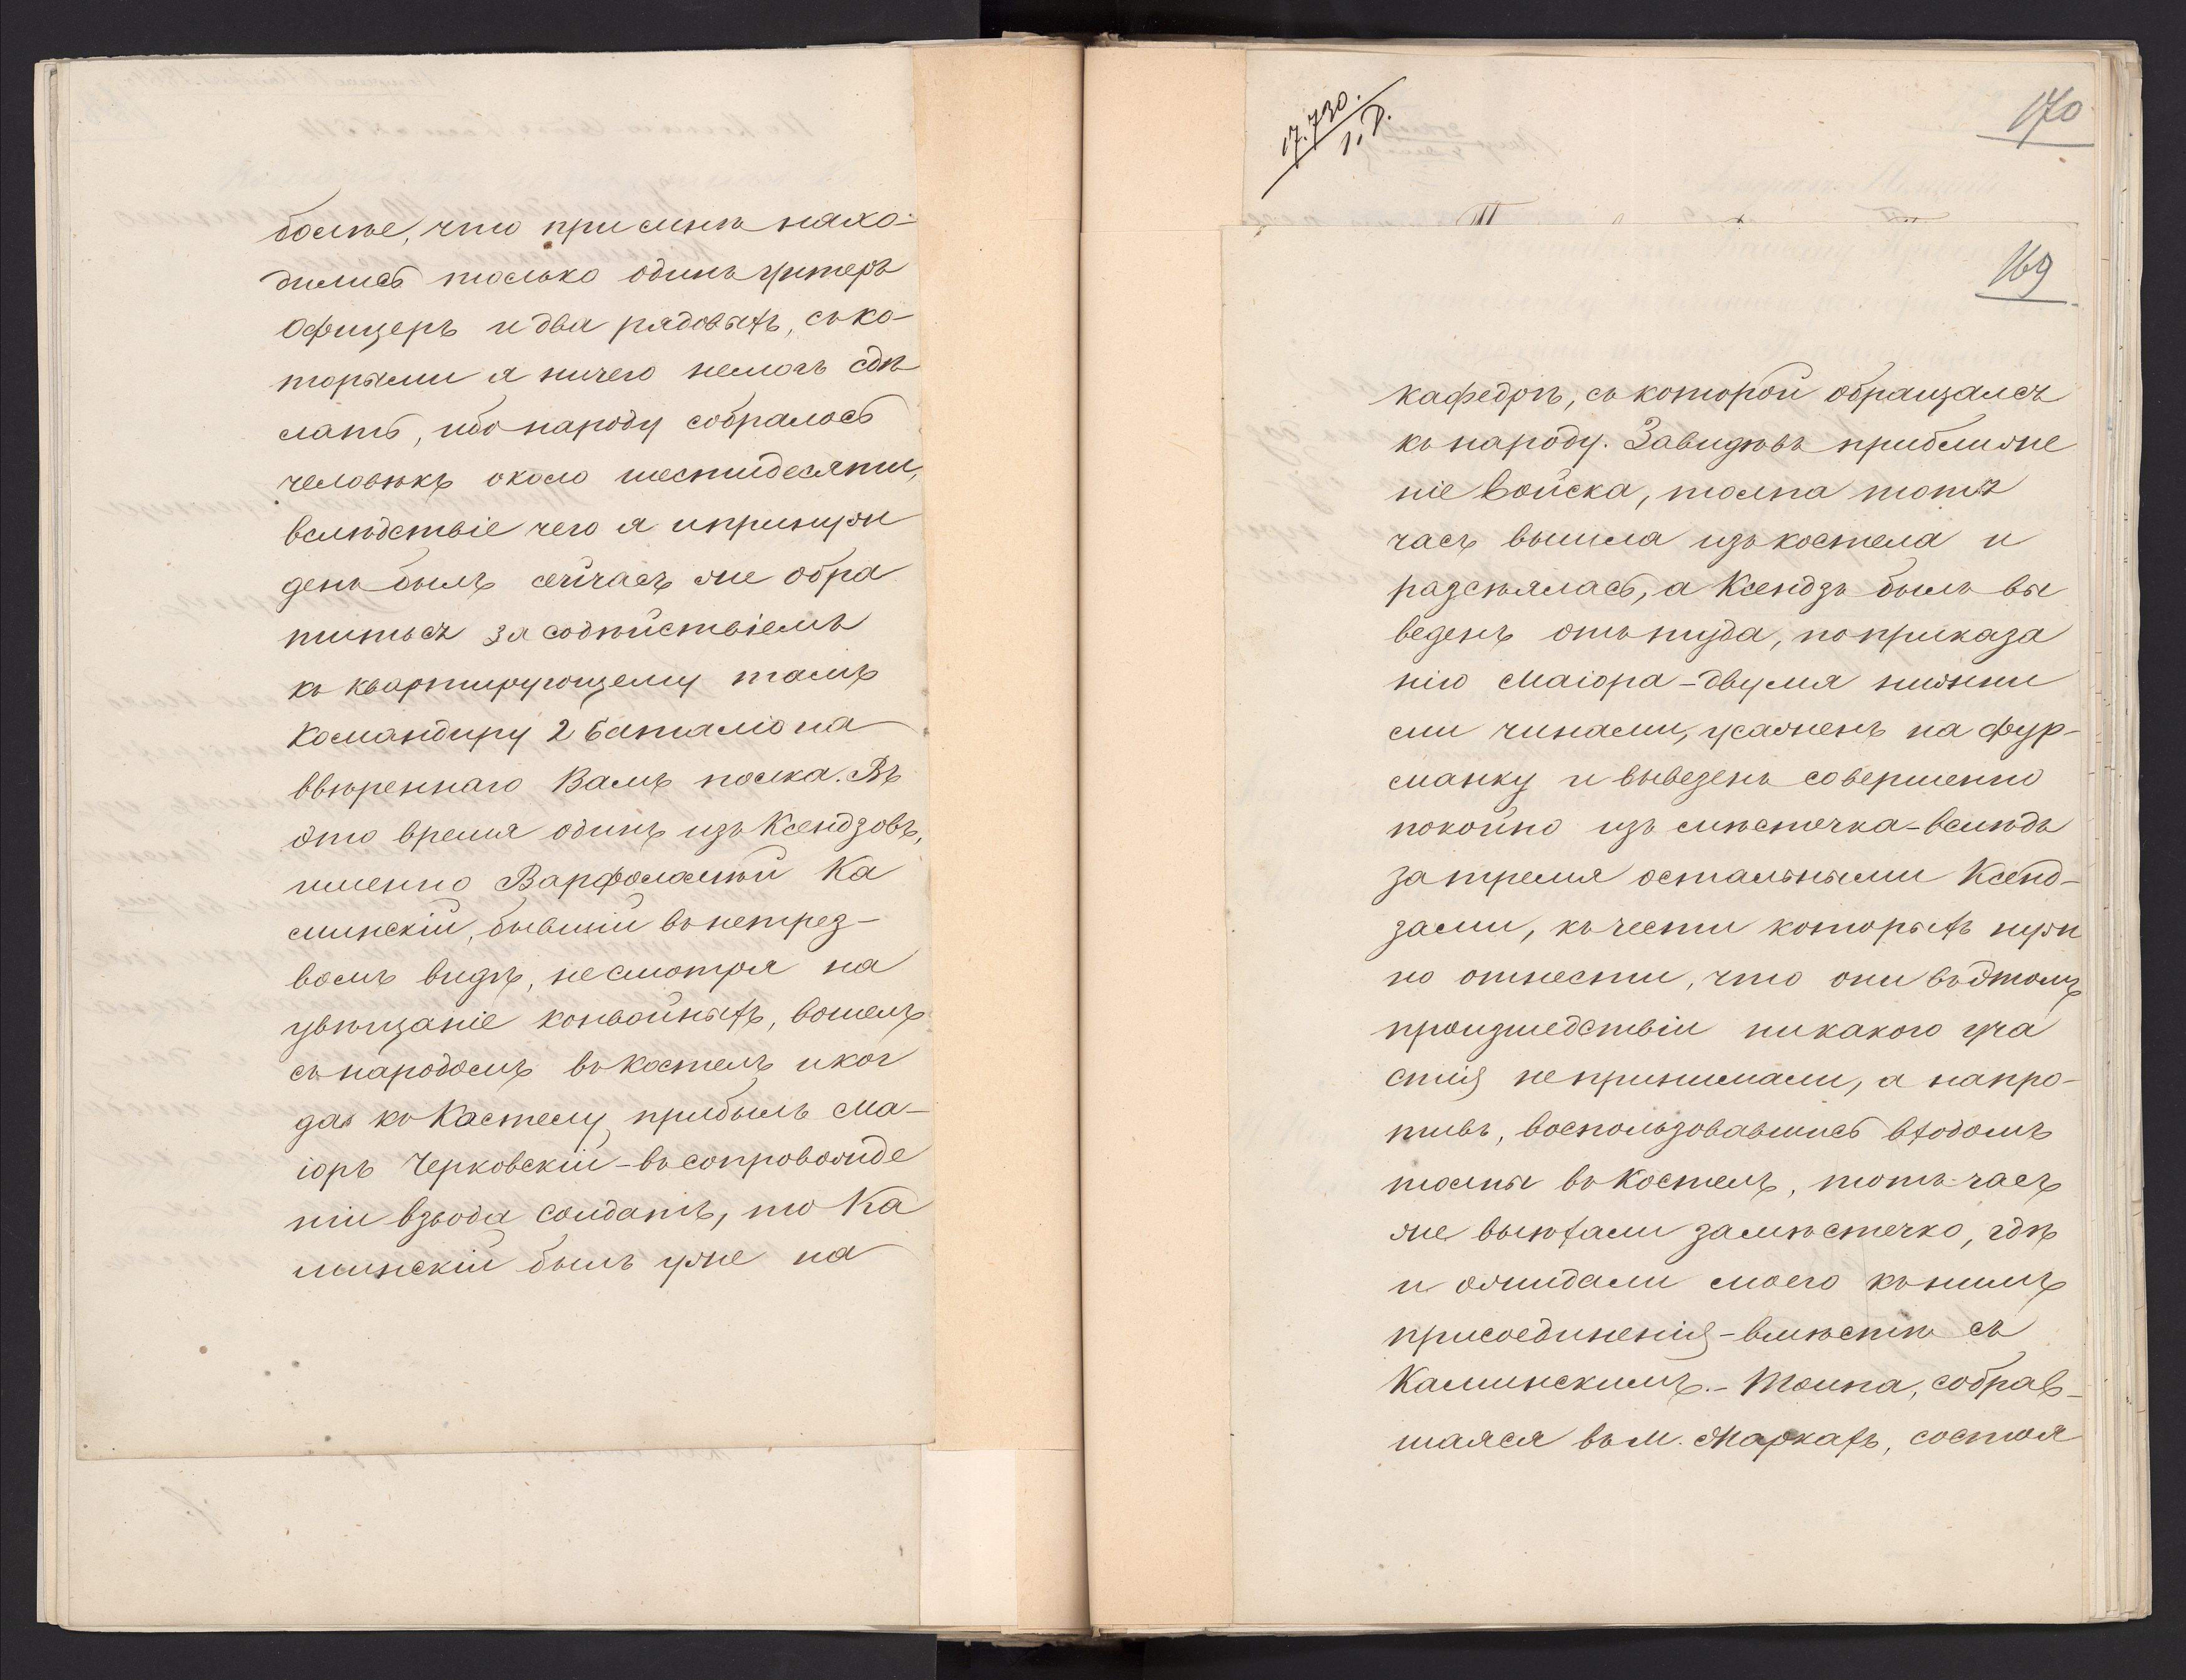 болѣе, что при мнѣ нахо-
дились только одинъ унтеръ
офицеръ и два рядовыхъ, съ ко-
торыми я ничего немогъ сдѣ
лать, ибо народу собралось
человѣкъ около шестидесяти,
вслѣдствіе чего я и принуж
денъ былъ сейчасъ же обра
титься за содѣйствіемъ
къ квартирующему тамъ
Командиру 2 баталіона
ввѣреннаго Вамъ полка. Въ
это время одинъ изъ Ксендзовъ,
именно Варфоламѣй Ка
минскій, бывшій въ нетрез-
вомъ видѣ, несмотря на
увѣщаніе конвойныхъ, вошелъ
съ народомъ въ костелъ и ког
да къ Кастелу прибылъ Ма-
іоръ Черковскій - въ сопровожде
ніи взвода солдатъ, то Ка
минскій былъ уже на
17.730.
1. Д.
170
169
кафедрѣ, съ которой обращался
къ народу. Завидѣвъ приближе
ніе войска, толпа тотъ
часъ вышла изъ костела и
разсѣялась, а Ксендзъ былъ вы
веденъ отъ туда, по приказа
нію Маіора - двумя нижни
ми чинами, усаженъ на фур-
манку и вывезенъ совершенно
покойно изъ мѣстечка - вслѣдъ
за тремя остальными Ксенд-
зами, къ чести которыхъ нуж
но отнести, что они въ этомъ
произшедствіи никакого уча
стія не принимали, а напро-
тивъ, воспользовавшись входомъ
толпы въ Костелъ, тотъ-часъ
же выѣхали за мѣстечко, гдѣ
и ожидали моего къ нимъ
присоединенія - вмѣстѣ съ
Каминскимъ. - Толпа, собрав-
шаяся въ м. Маркахъ, состоя